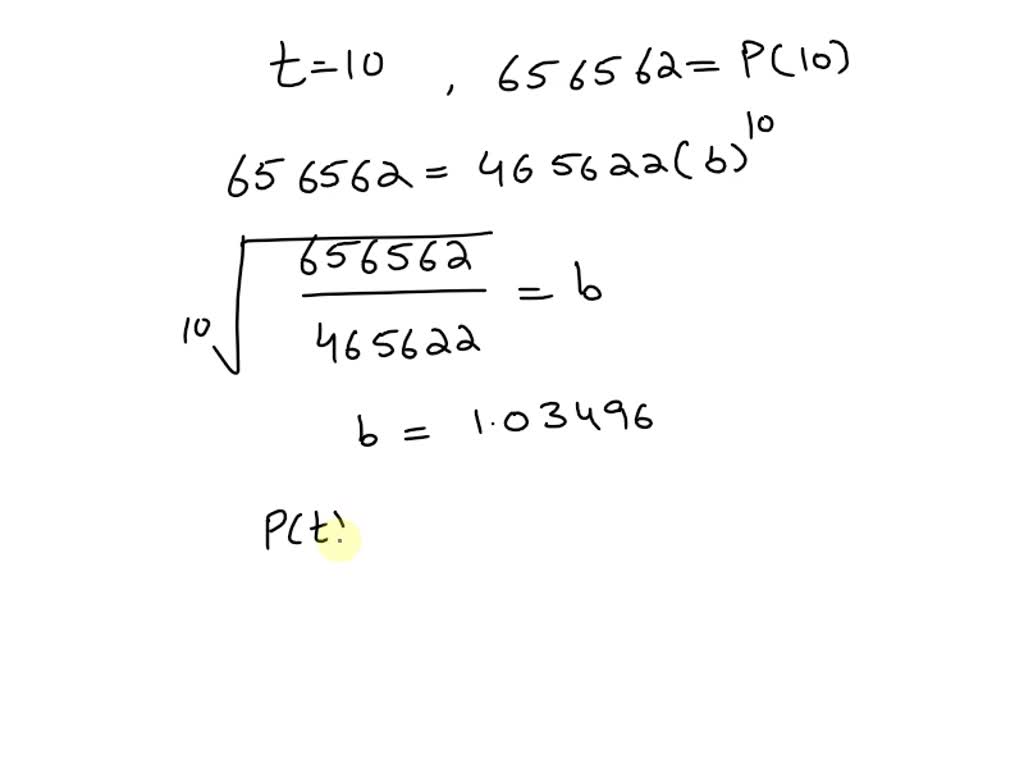 t=10 , 656562 = P(10)
656562 = 465622(b)^10
10√(656562/465622) = b
b = 1.03496
P(t)